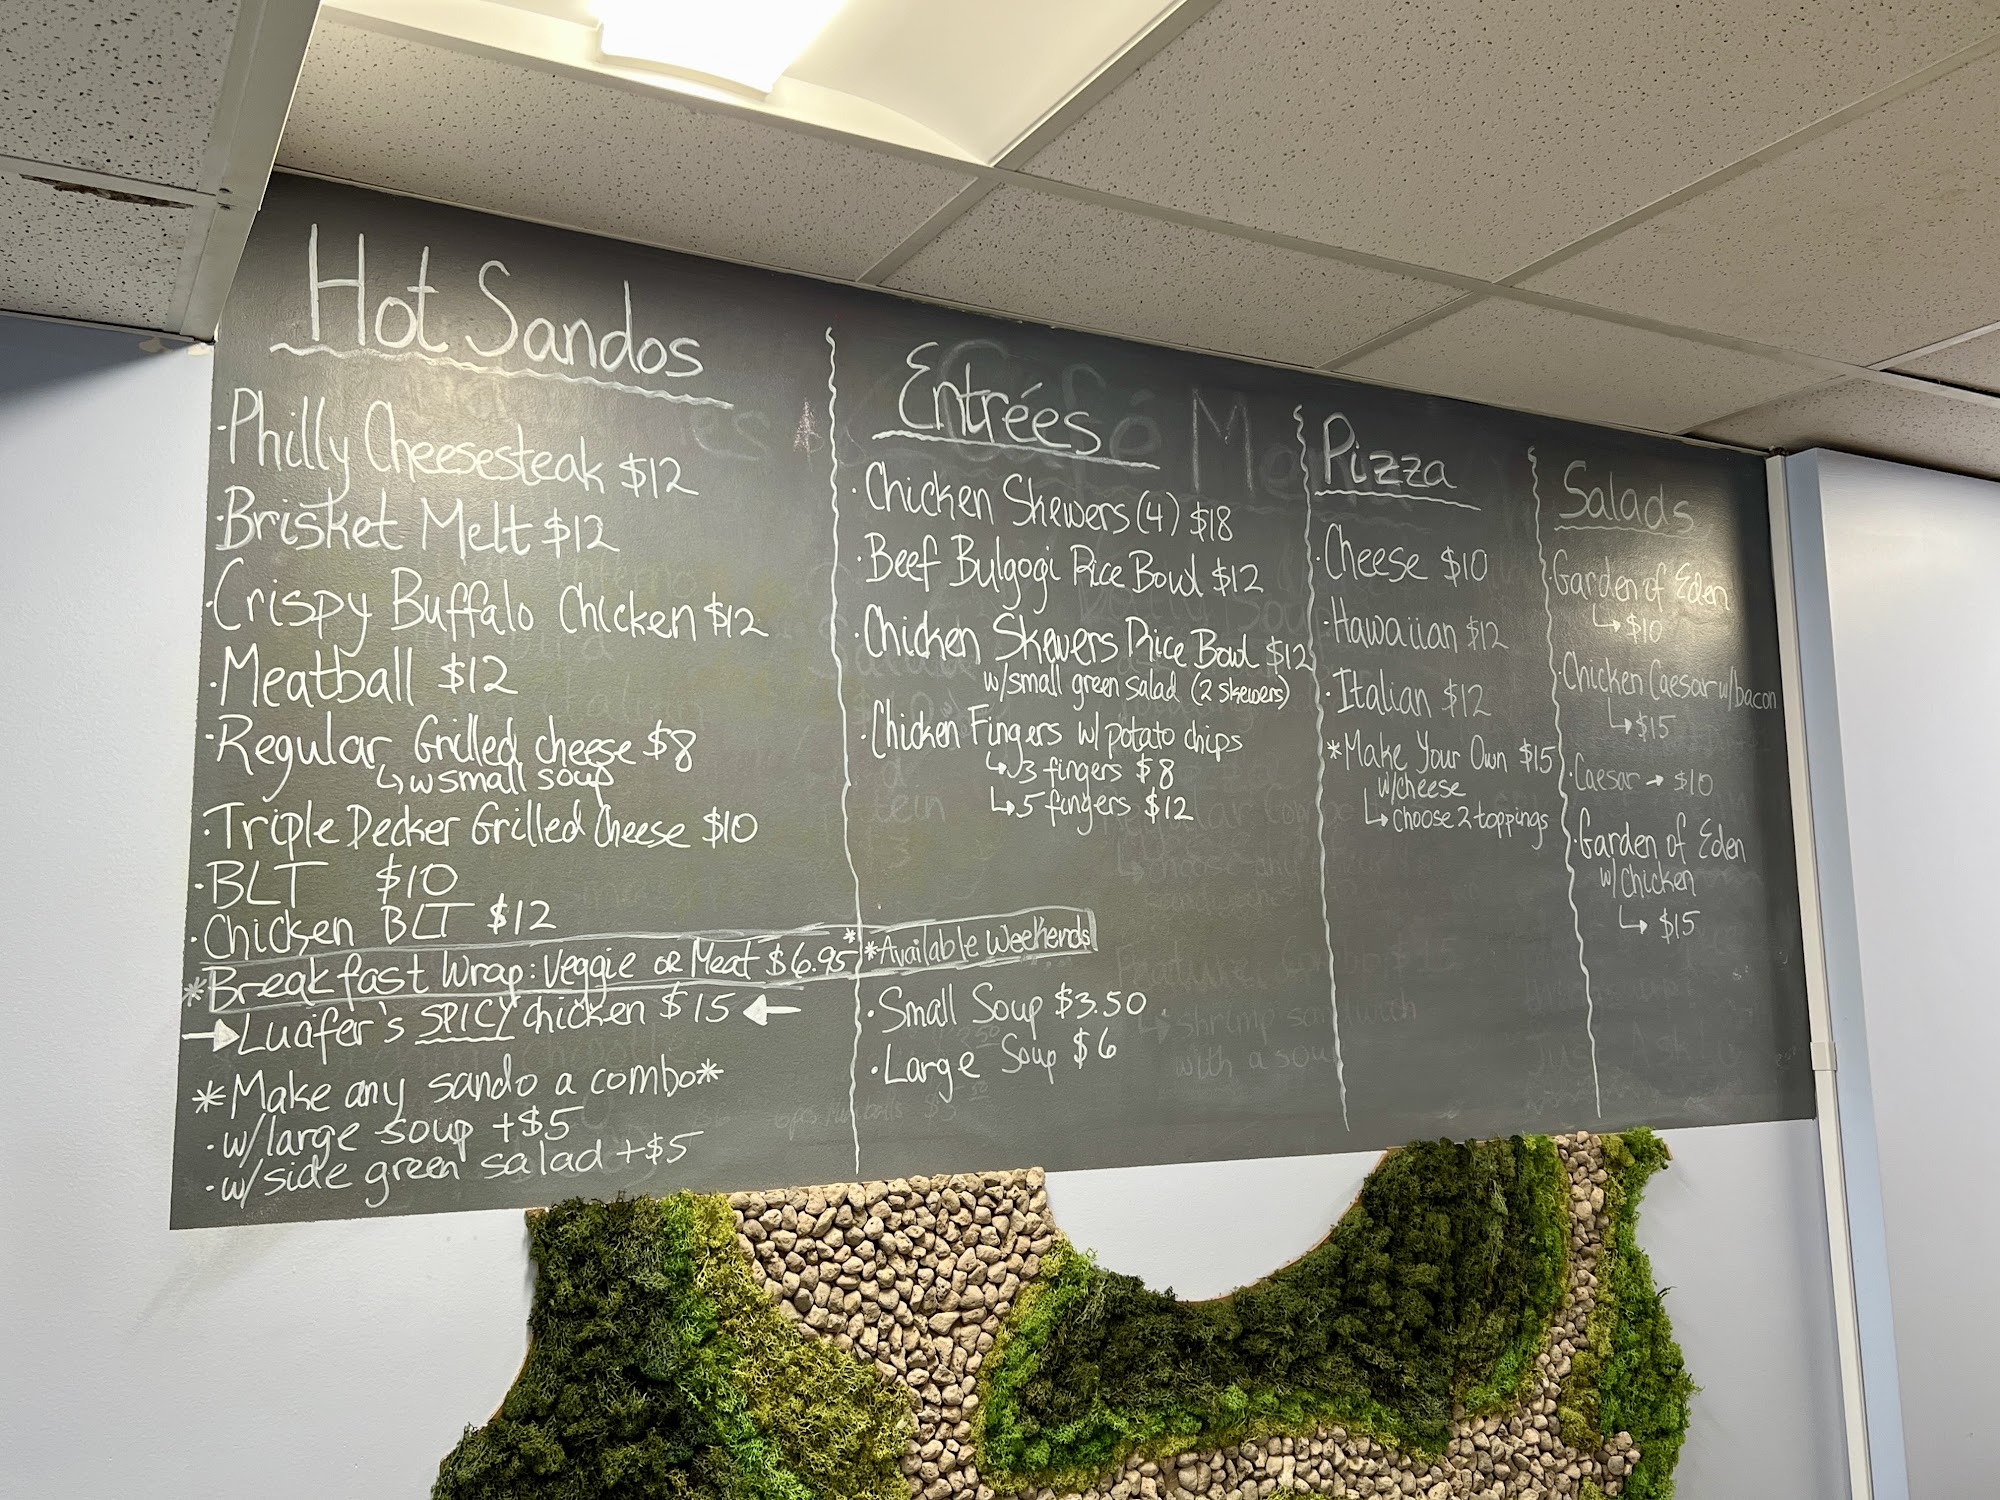 Hot Sandos
·Philly Cheesesteak $12
·Brisket Melt $12
·Crispy Buffalo Chicken $12
·Meatball $12
·Regular Grilled cheese $8
↳ w small soup
·Triple Decker Grilled Cheese $10
·BLT $10
·Chicken BLT $12
*Breakfast Wrap: Veggie or Meat $6.95* *Available Weekends
→Lucifer's SPICY chicken $15←
*Make any sando a combo*
·w/large soup +$5
·w/side green salad +$5
Entrées
·Chicken Skewers (4) $18
·Beef Bulgogi Rice Bowl $12
·Chicken Skewers Rice Bowl $12
w/small green salad (2 skewers)
·Chicken Fingers w/potato chips
↳3 fingers $8
↳5 fingers $12
·Small Soup $3.50
·Large Soup $6
Pizza
·Cheese $10
·Hawaiian $12
·Italian $12
*Make Your Own $15
w/cheese
↳choose 2 toppings
Salads
·Garden of Eden
↳$10
·Chicken Caesar w/bacon
↳$15
·Caesar → $10
·Garden of Eden
w/Chicken
↳ $15